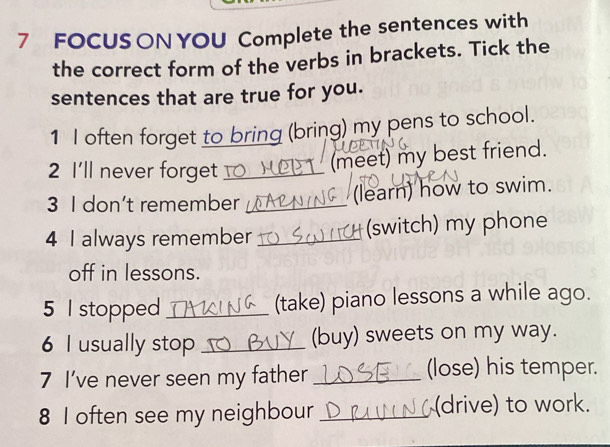 7 FOCUS ON YOU Complete the sentences with
the correct form of the verbs in brackets. Tick the
sentences that are true for you.
1 I often forget to bring (bring) my pens to school.
/ MEETING
2 I'll never forget TO MEET (meet) my best friend.
/ TO LEARN
3 I don't remember LEARNING (learn) how to swim.
4 I always remember TO SWITCH (switch) my phone
off in lessons.
5 I stopped TAKING (take) piano lessons a while ago.
6 I usually stop TO BUY (buy) sweets on my way.
7 I've never seen my father LOSE (lose) his temper.
8 I often see my neighbour DRIVING (drive) to work.